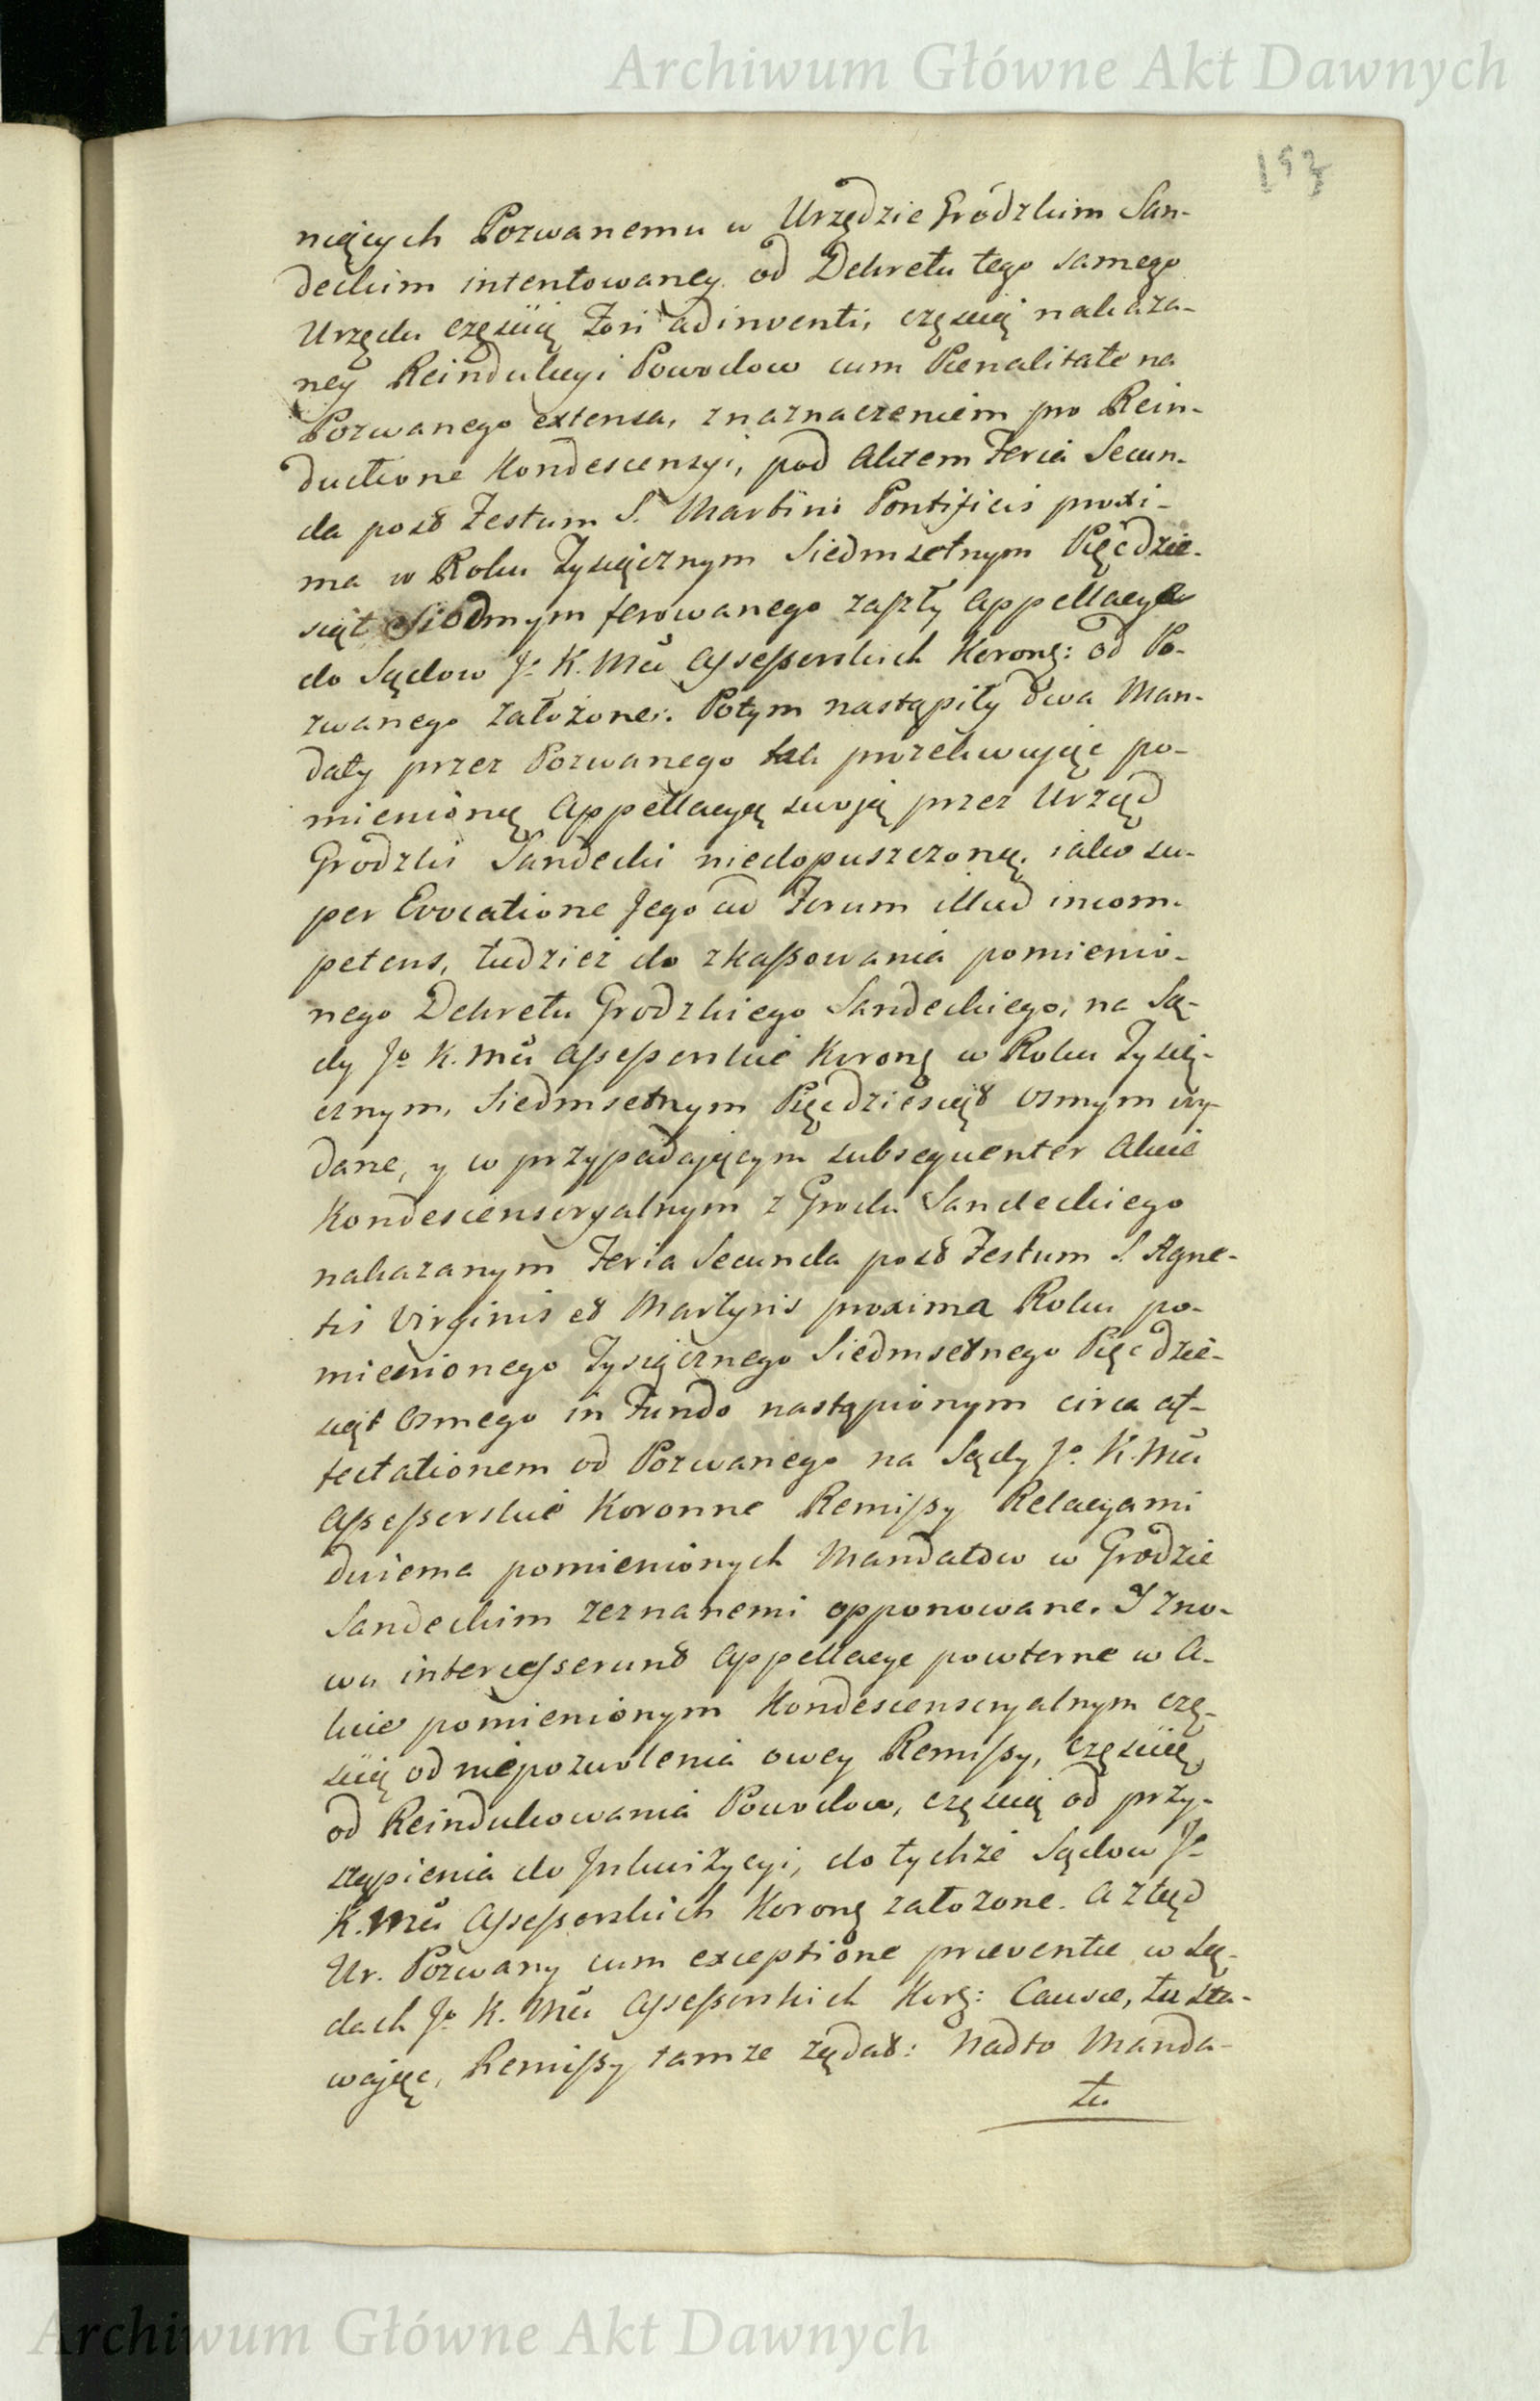 Archiwum Główne Akt Dawnych
nięcych Pozwanemu w Urzędzie Grodzkim San-
deckim intentowaney od Dekretu tego samego
Urzędu częścią Fori adinventi, częścią nakaza-
ney Reindukcyi Powodow cum Pœnalitate na
Pozwanego extensa, z naznaczeniem pro Rein-
ductione Kondescensyi, pod Aktem Feria Secun-
da post Festum S. Martini Pontificis proxi-
ma w Roku Tysiącznym Siedmsetnym Pięćdzie-
siąt Siodmym ferowanego zaszły Appellacye
do Sądow J. K. Mći Assessorskich Koronę: od Po-
zwanego założone. Potym nastąpiły dwa Man-
daty przez Pozwanego tak prozekwując po-
mienioną Appellacyą swoją przez Urząd
Grodzki Sandecki niedopuszczoną, iako su-
per Evocatione Jego ad Forum illud incom-
petens, tudzież do zkassowania pomienio-
nego Dekretu Grodzkiego Sandeckiego, na Są-
dy Jo K. Mći Assessorskie Koronę w Roku Tysią-
cznym, Siedmsetnym Pięćdziesiąt osmym wy-
dane, y w przypadającym subsequenter Akcie
Kondescensoryalnym z Grodu Sandeckiego
nakazanym Feria Secunda post Festum S. Agne-
tis Virginis et Martyris proxima Roku po-
mienionego Tysiącznego Siedmsetnego Pięćdzie-
siąt Osmego in Fundo nastąpionym circa af-
fectationem od Pozwanego na Sądy Jo. K. Mći
Assessorskie Koronne Remissy Relacyami
dwiema pomienionych Mandatow w Grodzie
Sandeckim zeznanemi opponowane. Y zno-
wu intercesserunt Appellacye powtorne w A-
kcie pomienionym Kondescensoryalnym czę-
ścią od niepozwolenia owey Remissy, częścią
od Reindukowania Powodow, częścią od przy-
stąpienia do Inkwizycyi, do tychże Sądow Jo
K. Mći Assessorskich Koronę założone. A ztąd
Ur. Pozwany cum exceptione præventæ w Są-
dach Jo K. Mći Assessorskich Korę: Causæ, tu sta-
wając, Remissy tamże żądał: Nadto Manda-
tu
Archiwum Główne Akt Dawnych